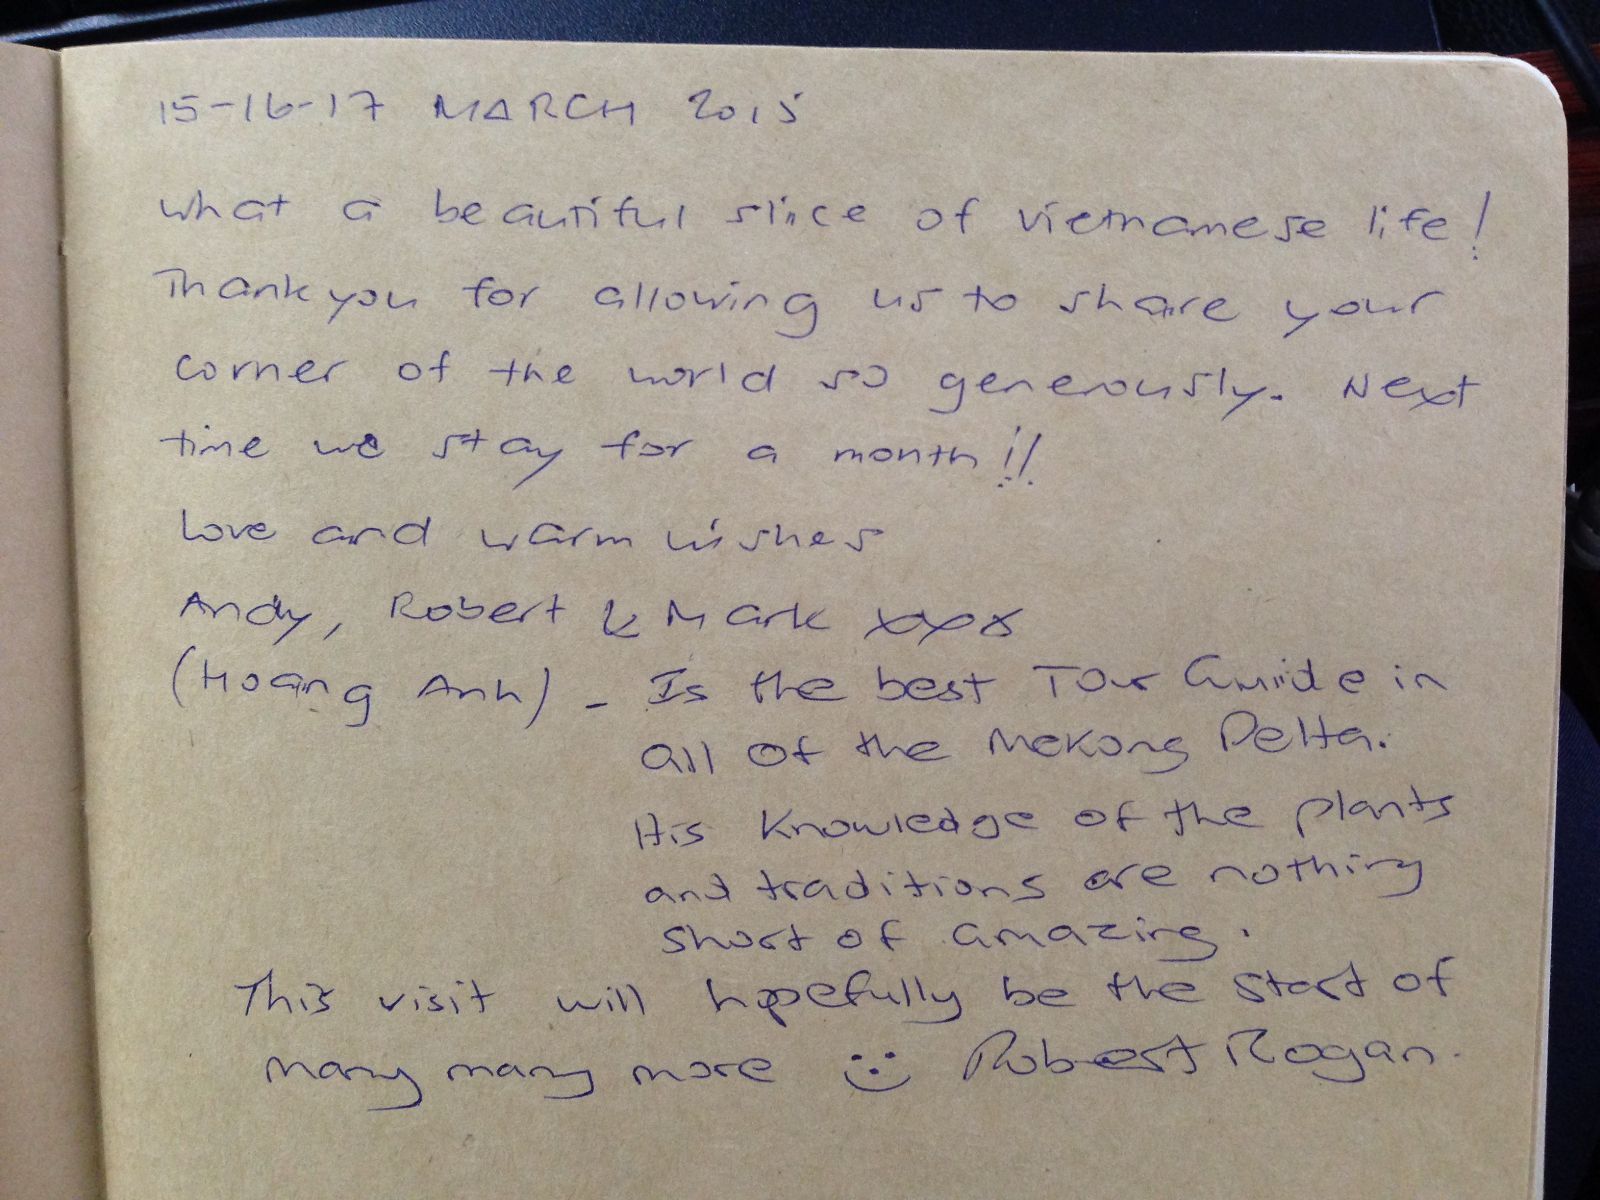 15-16-17 MARCH 2015
what a beautiful slice of vietnamese life!
Thankyou for allowing us to share your
corner of the world so generously. Next
time we stay for a month!!
Love and warm wishes
Andy, Robert & Mark xxx
(Hoang Anh) - Is the best Tour Guide in
all of the Mekong Delta.
His Knowledge of the plants
and traditions are nothing
short of amazing.
This visit will hopefully be the start of
many many more :) Robert Rogan.